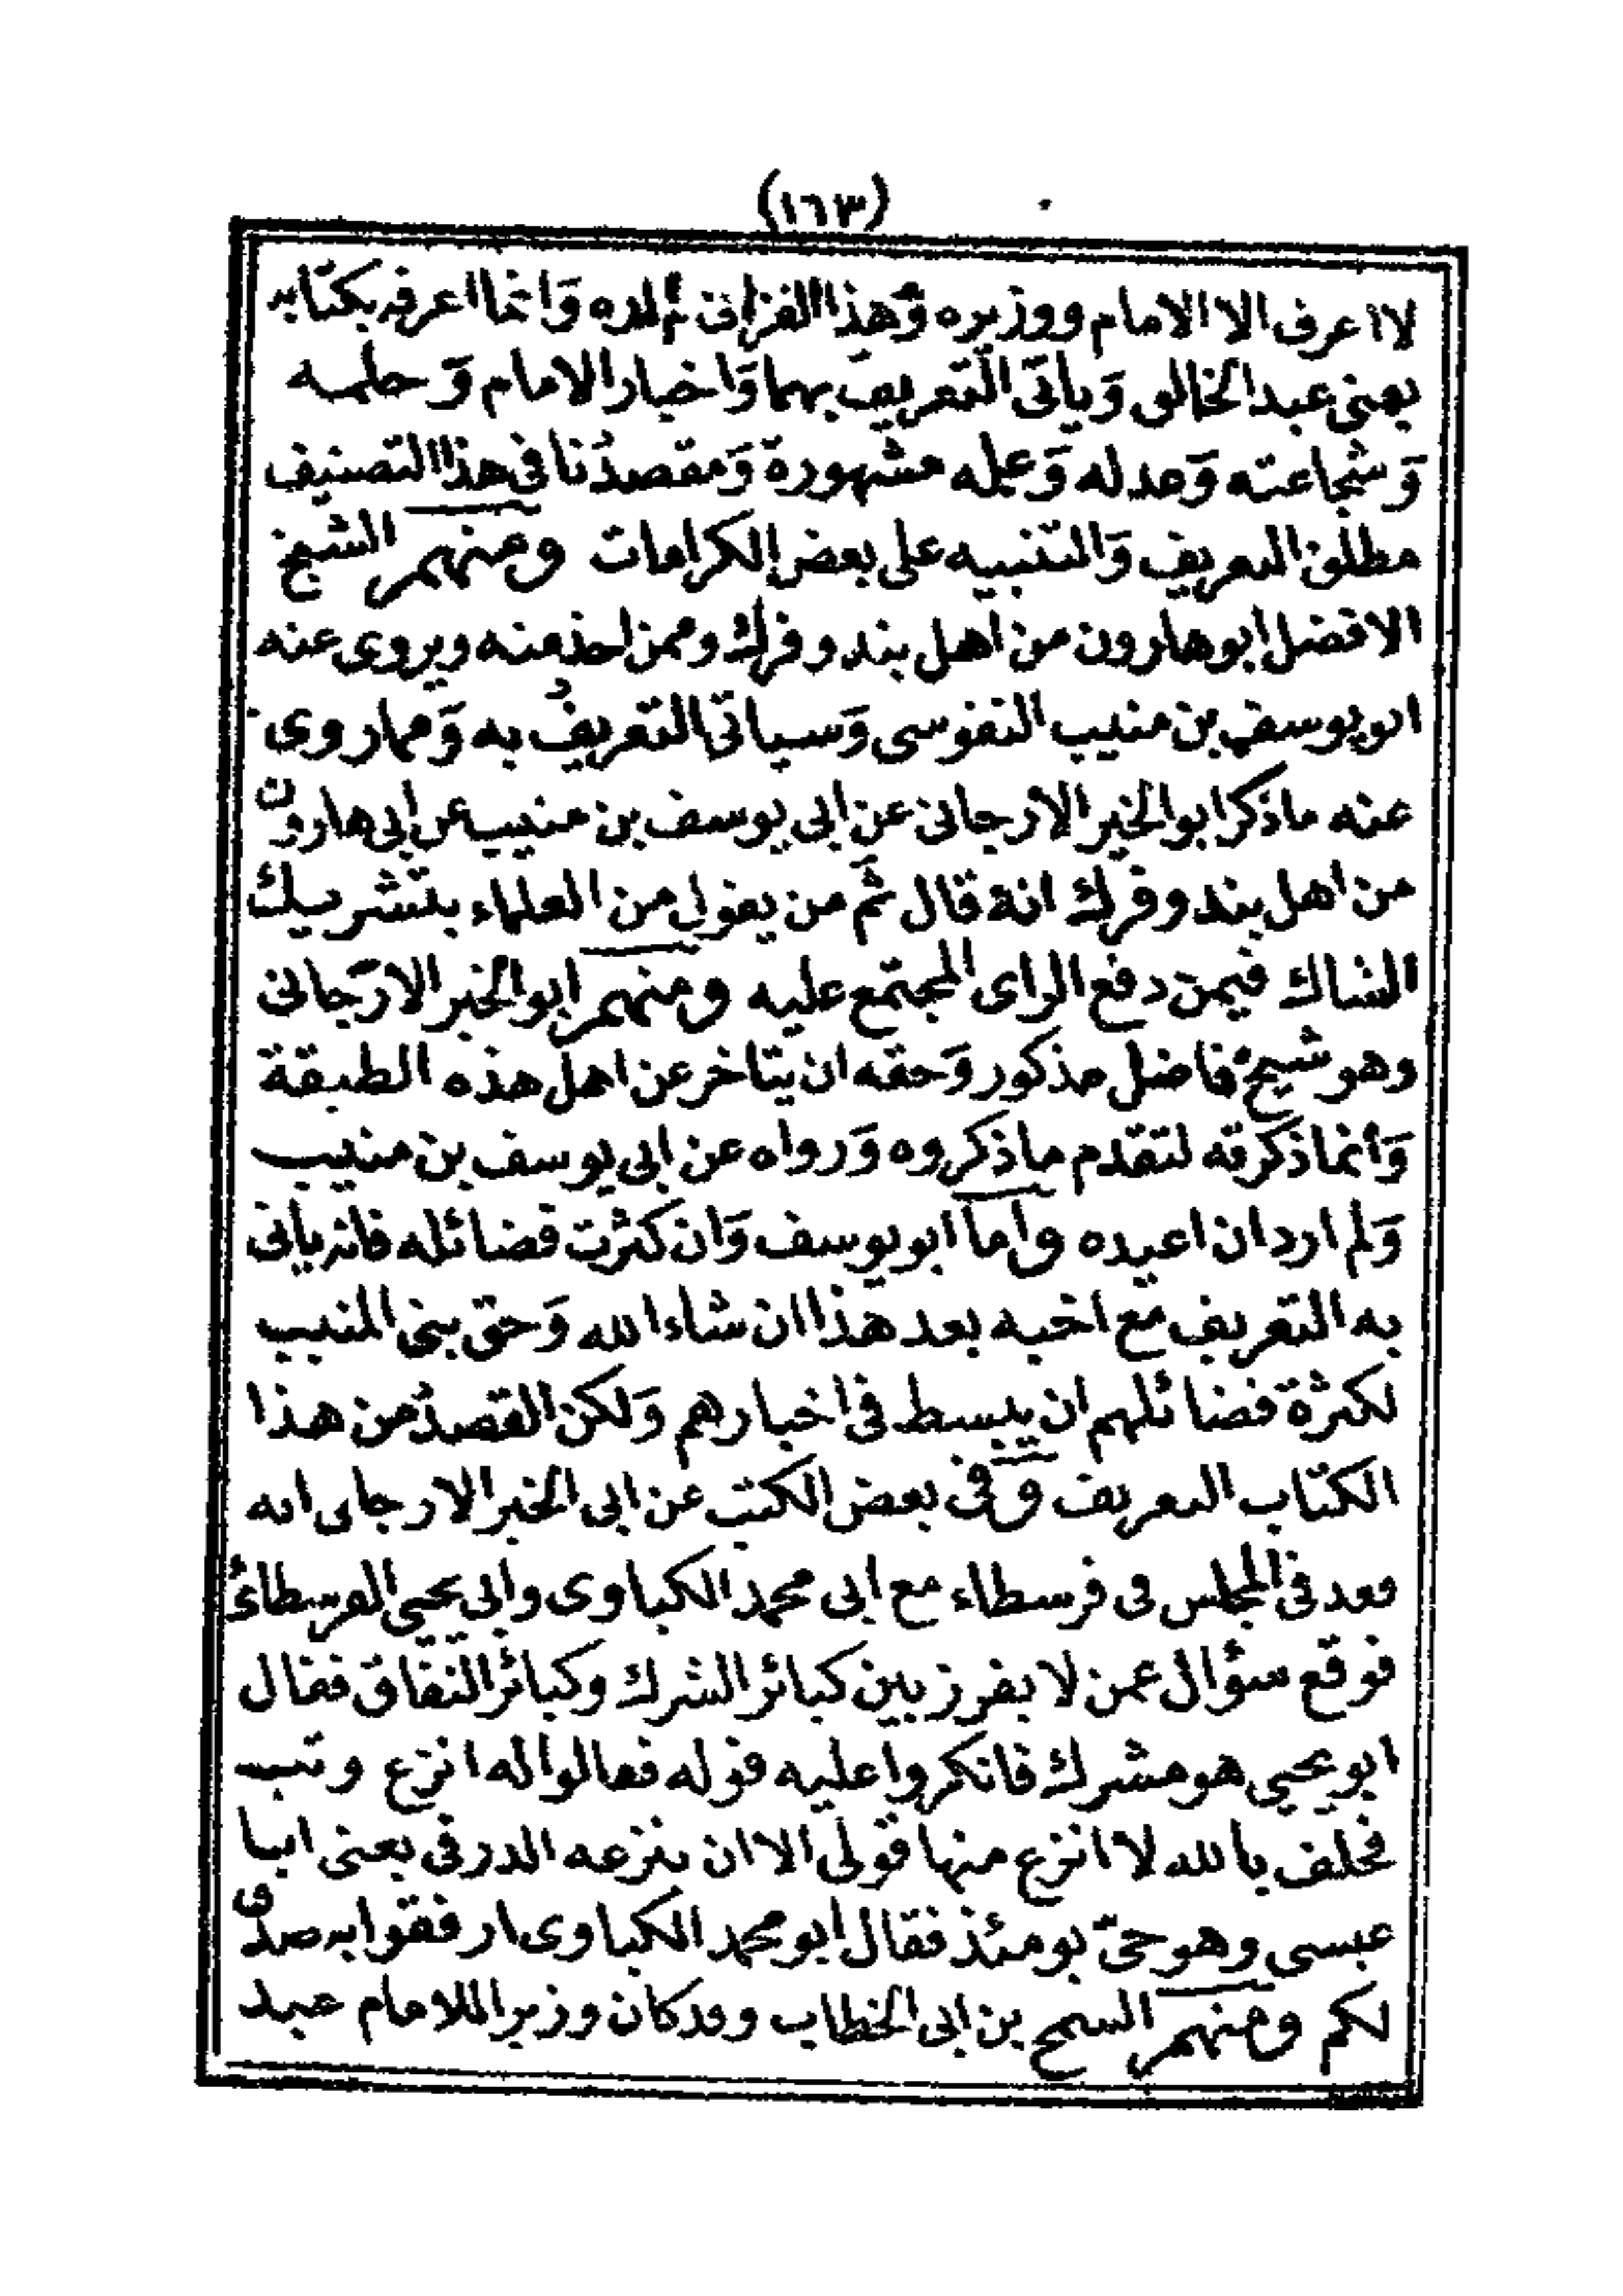 (١٦٣)
لا اعرف الا الامام ووزيره وَهذا الفزانى لم اره وَانما اعرفه بكتابه
يعنى عبد الخالق وَياتى التعريف بهما وَاخبار الامام وَحلمه
وَشجاعته وَعدله وَعلمه مشهورة وَمقصدُنا فى هذا التصنيف
مطلق التعريف وَالتنبيه على بعض الكرامات ومنهم الشيخ
الافضل ابو هارون من اهل بندوفرك وممن اخذ عنه ويروى عنه
ابو يوسف بن منيب النفوسى وَسياتى التعريفُ به وَمما روى
عنه ما ذكر ابو الخير الارجانى عن ابى يوسف بن منيب عن ابى هارون
من اهل بندوفرك انه قال ثَم من يقول من العلماء بتشريك
الشاك فيمن دفع الراى المجتمع عليه ومنهم ابو الخير الارجانى
وهو شيخٌ فاضل مذكور وَحقه ان يتاخر عن اهل هذه الطبقة
وَانما ذكرته لتقدم ما ذكروه وَرواه عن ابى يوسف بن منيب
وَلم ارد ان اعيده واما ابو يوسف وَان كثرت فضائله فانه ياتى
به التعريف مع اخيه بعد هذا ان شاء الله وَحق بنى المنيب
لكثرة فضائلهم ان يبسط فى اخبارهم وَلكن القصدُ من هذا
الكتاب التعريف وَفى بعض الكتب عن ابى الخير الارجانى انه
قعد فى المجلس فى فرسطاء مع ابى محمد الكباوى وابى يحيى الفرسطائى
فوقع سؤال عمن لا يفرز بين كبائر الشرك وكبائر النفاق فقال
ابو يحيى هو مشرك فانكروا عليه قوله فقالوا له انزع وتب
فحلف بالله لا انزع منها قولى الا ان ينزعه الدرفى يعنى ابا
عيسى وهو حىّ يومئذ فقال ابو محمد الكباوى ارفقوا به صدق
لكم ومنهم السمح بن ابى الخطاب وقد كان وزيرا للامام عبد